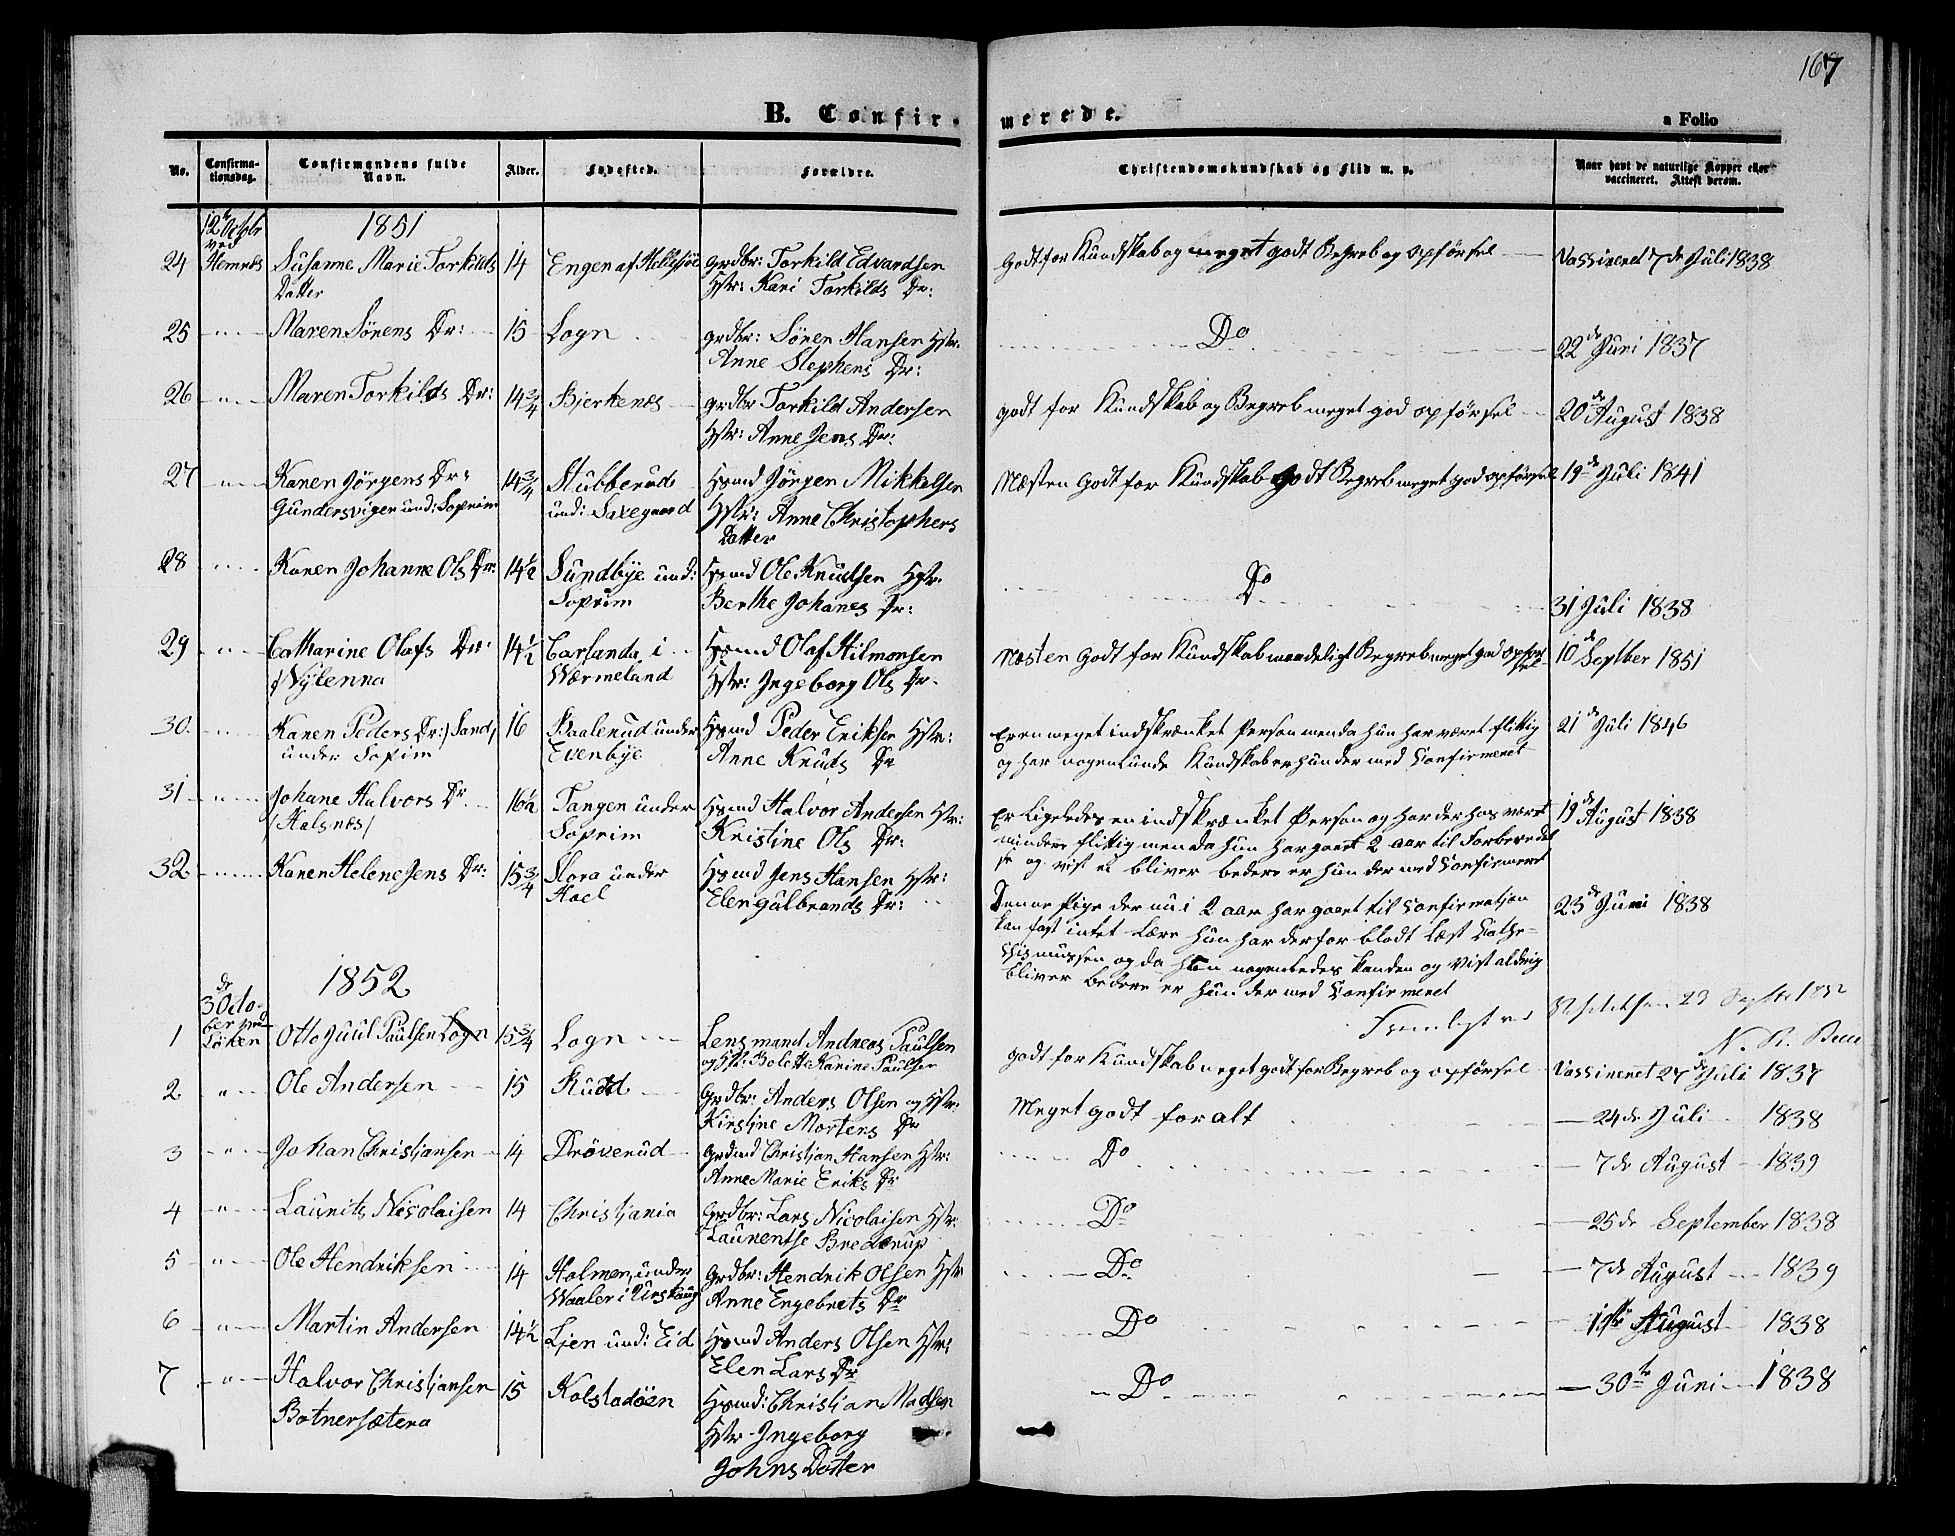 167
B. Confirmerede.
a Folio
No.
Confirmationsdag.
Confirmandens fulde Navn.
Alder.
Fødested.
Forældre.
Christendomskundskab og Flid m. v.
Naar havt de naturlige Kopper eller vaccineret. Attest derom.
12te Octbr ved Hemnes
1851
24 Susanne Marie Torkilds Datter 14 Engen af Hellesjøe Grdbr: Torkild Edvardsen Hstr: Kari Torkilds Dr: Godt for Kundskab og meget godt Begreb og Opførsel Vassineret 7de Juli 1838
25 -"- Maren Sørens Dr: 15 Logn Grdbr: Sören Hansen Hstr: Anne Stephens Dr: Do 22de Juni 1837
26 -"- Maren Torkilds Dr: 14 3/4 Bjerkenes Grdbr Torkild Andersen Hstr: Anne Jens Dr: godt for Kundskab og Begreb meget god opførsel 20de August 1838
27 -"- Karen Jörgens Dr: Gundersvigen und: Soprim 14 3/4 Stubberud und: Saxegaard Hsmd Jörgen Mikkelsen Hstr: Anne Christophers Datter Næsten Godt for Kundskab Godt Begreb meget god opførsel 19de Juli 1841
28 -"- Karen Johanne Ols Dr: 14 1/2 Sundbye und: Soprim Hsmd Ole Knudsen Hstr: Berthe Johanes Dr: Do 31 Juli 1838
29 -"- Catharine Olafs Dr: /Nÿtenna 14 1/2 Carlanda i Wærmeland Hsmd Olaf Hilmonsen Hstr: Ingeborg Ols Dr. Næsten Godt for Kundskab maadeligt Begreb meget god opførsel 10de Septber 1851
30. -"- Karen Peders Dr: /Sand/ under Sofim 16 Kaalerud under Evenbye Hsmd Peder Eriksen Hstr: Anne Knuds Dr Er en meget indskrænket Person men da hun har været flittig 21de Juli 1846
og har nogenlunde Kundskab er hun der med Confirmeret
31 -"- Johane Halvors Dr /Halsnæs/ 16 1/2 Tangen under Soprim Hsmd Halvor Andersen Hstr: Kristine Ols Dr: Er ligeledes en indskrænket Person og har der hos været 19de August 1838
mindre flittig men da hun har gaaet 2 aar til Forberedel
se og vist ei bliver bedere er hun der med Confirmeret
32 -"- Karen Helene Jens Dr: 15 3/4 Kora under Hoel Hsmd Jens Hansen Hstr: Elen Gulbrands Dr: Denne Pige der nu i 2 aar har gaaet til Confirmatjon 23de Juni 1838
kan fast intet Lære hun har derfor blodt Læst Cathe-
chismussen og da hun nogenledes kan den og vist aldrig
bliver bedere er hun der med Confirmeret
1852
de 3 Octo-
ber ved
Löken
1 Otto Juul Paulsen Logn 15 3/4 Logn Lensmand Andreas Paulsen og Hst: Bolette Karine Paulsen godt for Kundskab meget godt for Begreb og opførsel Vassineret 27de Juli 1837
2 -"- Ole Andersen 15 Rud Grdbr: Anders Olsen og Hstr: Kirstine Mortens Dr Meget godt for alt 24de Juli 1838
3 -"- Johan Christjansen 14 Drövenud Grdmd Christjan Hansen Hstr: Anne Marie Eriks Dr Do 7de August 1839
4 -"- Launits Nicolaisen 14 Christjania Grdbr: Lars Nicolaisen Hstr: Laurentse Brederup Do 25de September 1838
5 -"- Ole Hendriksen 14 Holmen under Waaler i Urskaug Grdbr: Hendrik Olsen Hstr Anne Engebrets Dr Do 7de August 1839
6 -"- Martin Andersen 14 1/2 Ljen und: Eid Hsmd Anders Olsen Hstr: Elen Lars Dr Do August 1838
7 -"- Halvor Christjansen Botnersætera 15 Kolstadöen Hsmd: Christjan Madsen Hstr Ingeborg Johns Dotter Do 30te Juni 1838